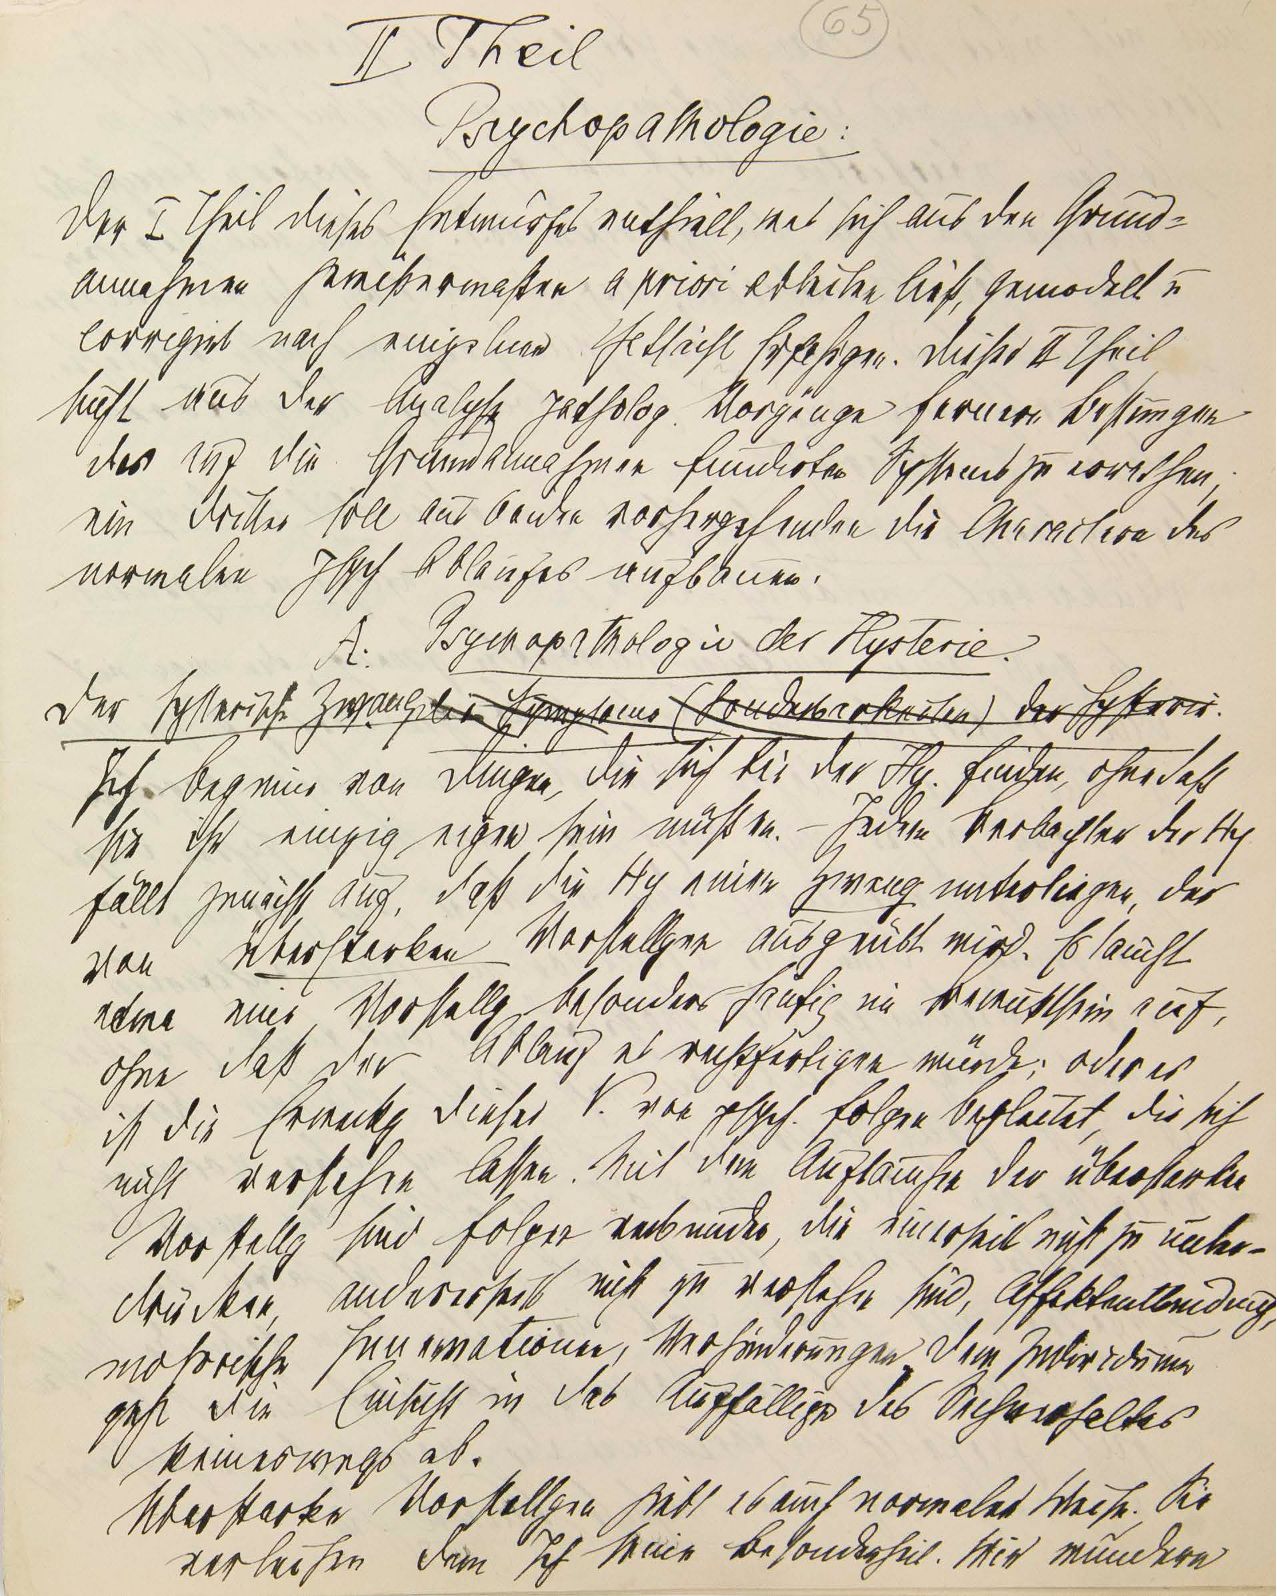 65
II Theil
Psychopathologie:
Der I Theil dieses Entwurfes enthielt, was sich aus den Grund=
annahmen gewißermaßen a priori ableiten ließ, gemodelt u
corrigirt nach einzelnen thatsächl Erfahrgen. Dieser II Theil
sucht aus der Analyse patholog. Vorgänge fernere Bestimgen
des auf die Grundannahmen fundirten Systems zu errathen,
ein dritter soll aus beiden vorhergehenden die Charactere des
normalen psych Ablaufes aufbauen.
A. Psychopathologie der Hysterie.
Der hysterische Zwang die Symptome (Sonderbarkeiten) der Hysterie.
Ich beginne von Dingen, die sich bei der Hy. finden, ohne daß
sie ihr einzig eigen sein müßten. – Jedem Beobachter der Hy
fällt zunächst auf, daß die Hy einem Zwang unterliegen, der
von überstarken Vorstellgen ausgeübt wird. Es taucht
etwa eine Vorstellg besonders häufig im Bewußtsein auf,
ohne daß der Ablauf es rechtfertigen würde; oder es
ist die Erweckg dieser V. von psych. Folgen begleitet, die sich
nicht verstehen lassen. Mit dem Auftauchen der überstarken
Vorstellg sind Folgen verbunden, die einerseits nicht zu unter-
drücken, andererseits nicht zu verstehen sind, Affektentbindung,
motorische Innervationen, Verhinderungen. Dem Individuum
geht die Einsicht in das Auffällige des Sachverhaltes
keineswegs ab.
Überstarke Vorstellgen giebt es auch normaler Weise. Sie
verleihen dem Ich seine Besonderheit. Wir wundern